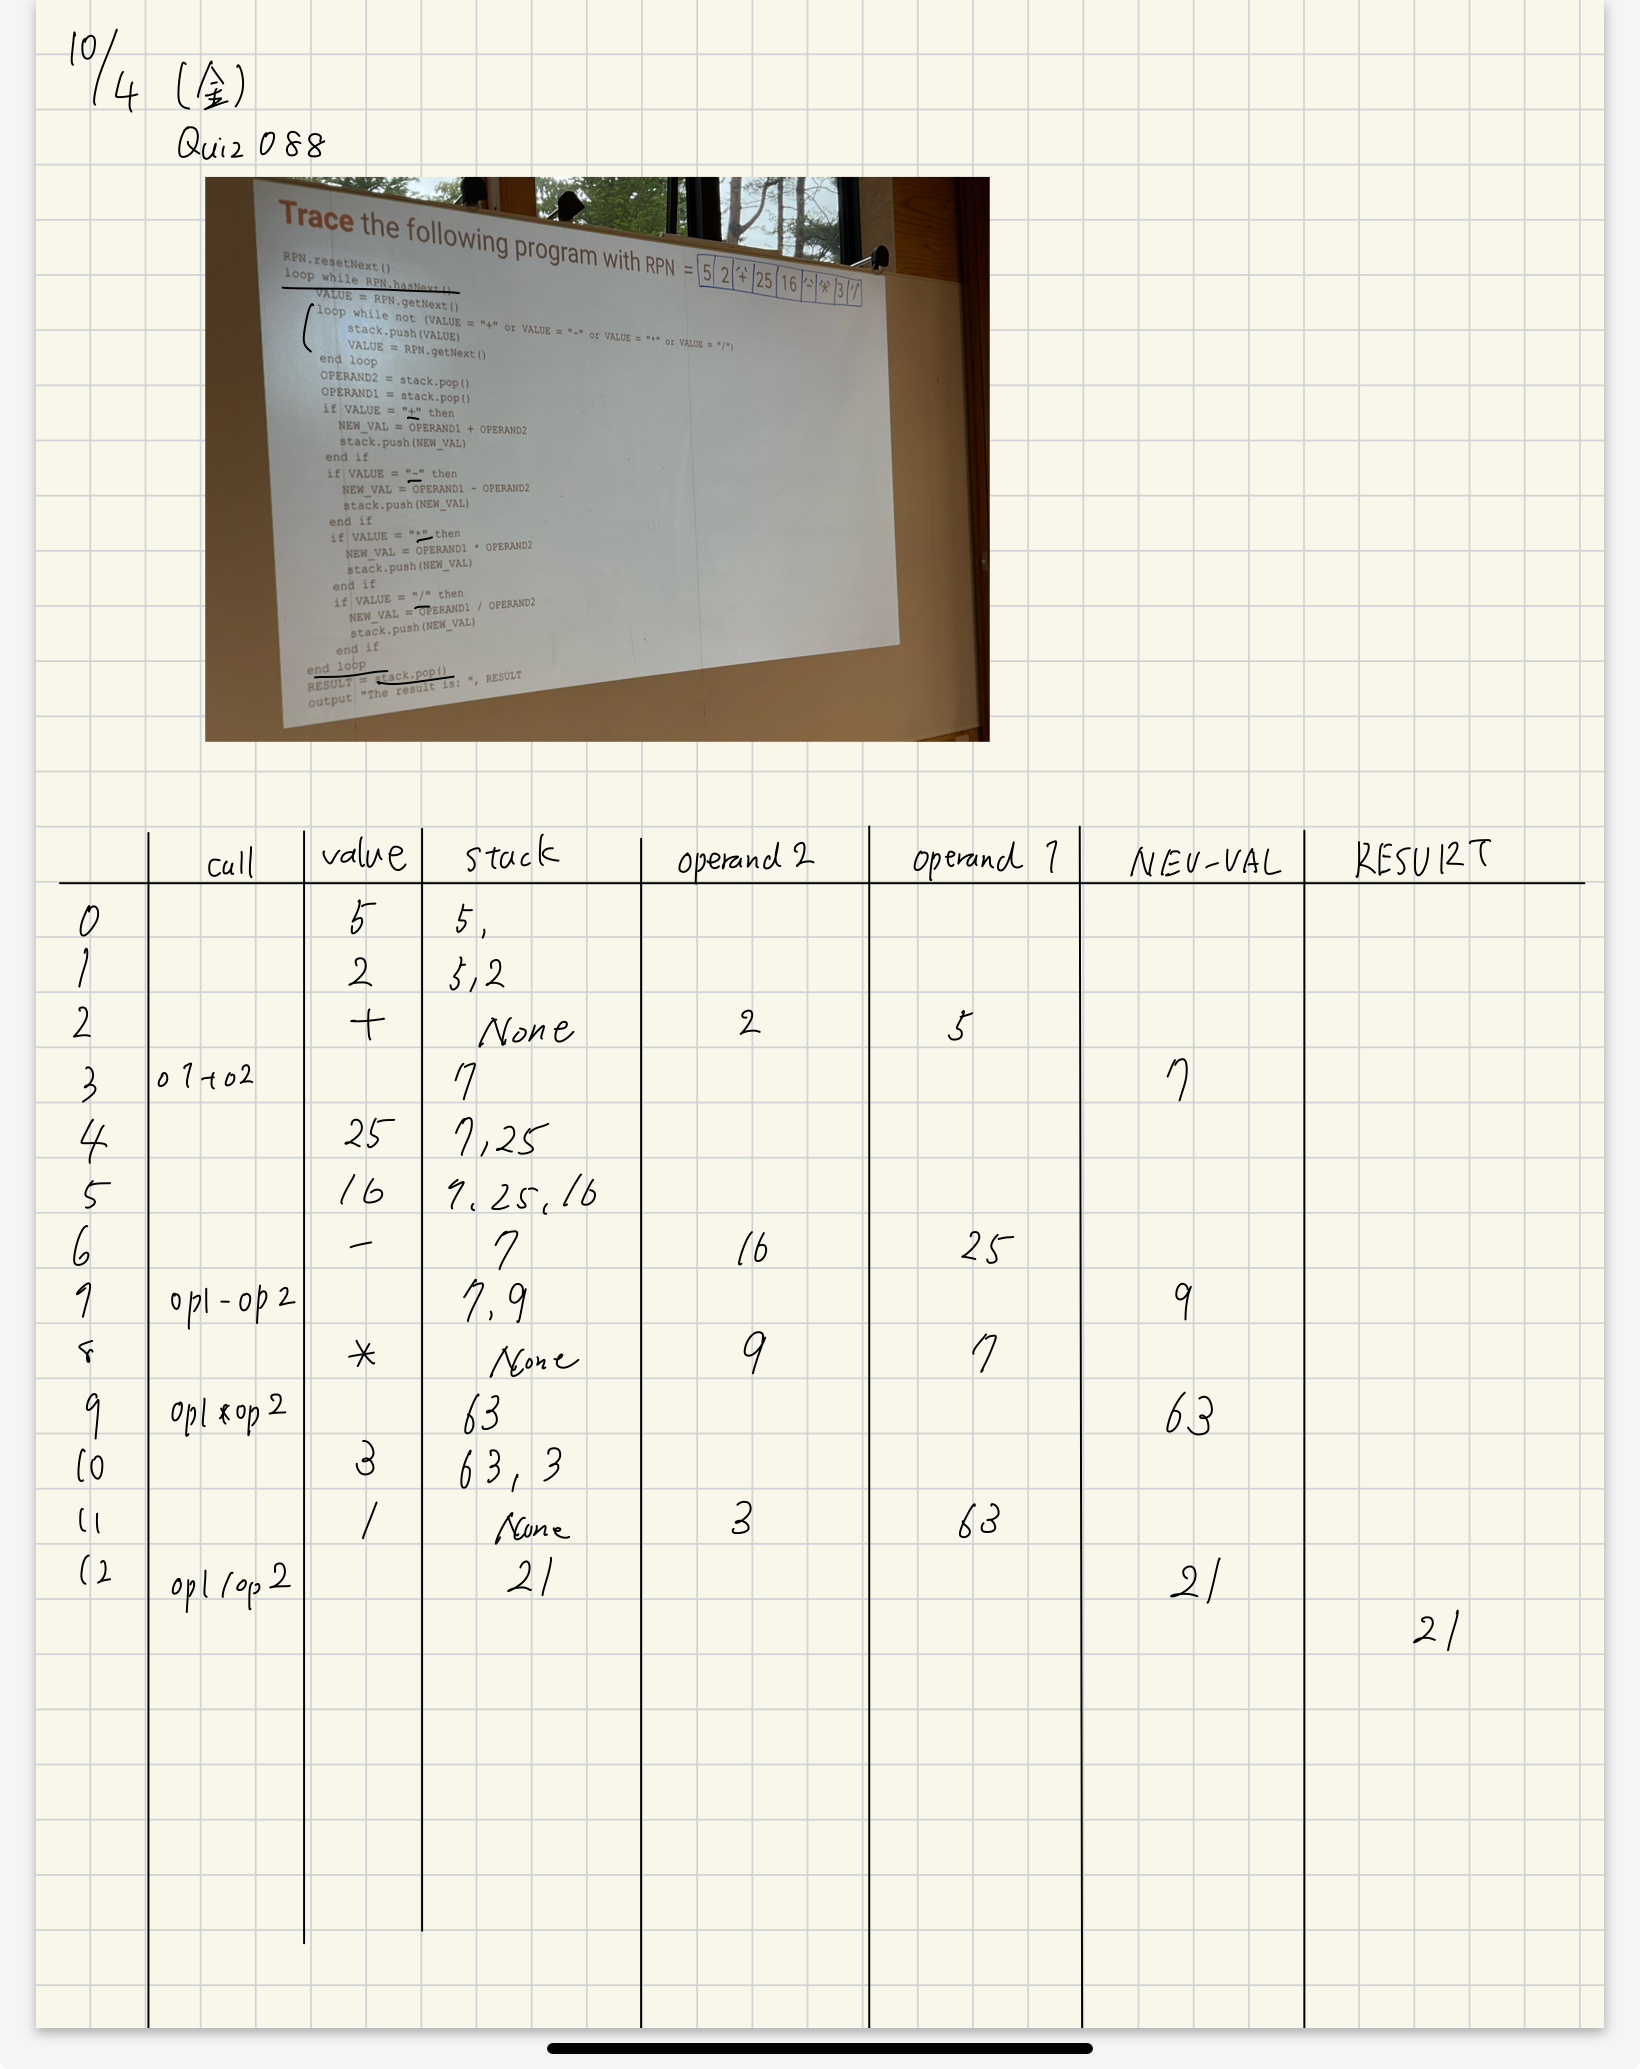 10/4 (金)
Quiz 088
Trace the following program with RPN = 5 2 "+" 25 16 "-" "*" 3 "/"
RPN.resetNext()
loop while RPN.hasNext()
VALUE = RPN.getNext()
loop while not (VALUE = "+" or VALUE = "-" or VALUE = "*" or VALUE = "/")
stack.push(VALUE)
VALUE = RPN.getNext()
end loop
OPERAND2 = stack.pop()
OPERAND1 = stack.pop()
if VALUE = "+" then
NEW_VAL = OPERAND1 + OPERAND2
stack.push(NEW_VAL)
end if
if VALUE = "-" then
NEW_VAL = OPERAND1 - OPERAND2
stack.push(NEW_VAL)
end if
if VALUE = "*" then
NEW_VAL = OPERAND1 * OPERAND2
stack.push(NEW_VAL)
end if
if VALUE = "/" then
NEW_VAL = OPERAND1 / OPERAND2
stack.push(NEW_VAL)
end if
end loop
RESULT = stack.pop()
output "The result is: ", RESULT
call value stack operand 2 operand 1 NEU-VAL RESULT
0 5 5,
1 2 5,2
2 + None 2 5
3 o1+o2 7 7
4 25 7,25
5 16 7.25,16
6 - 7 16 25
7 op1-op2 7,9 9
8 * None 9 7
9 op1*op2 63 63
10 3 63, 3
11 / None 3 63
12 op1/op2 21 21
21